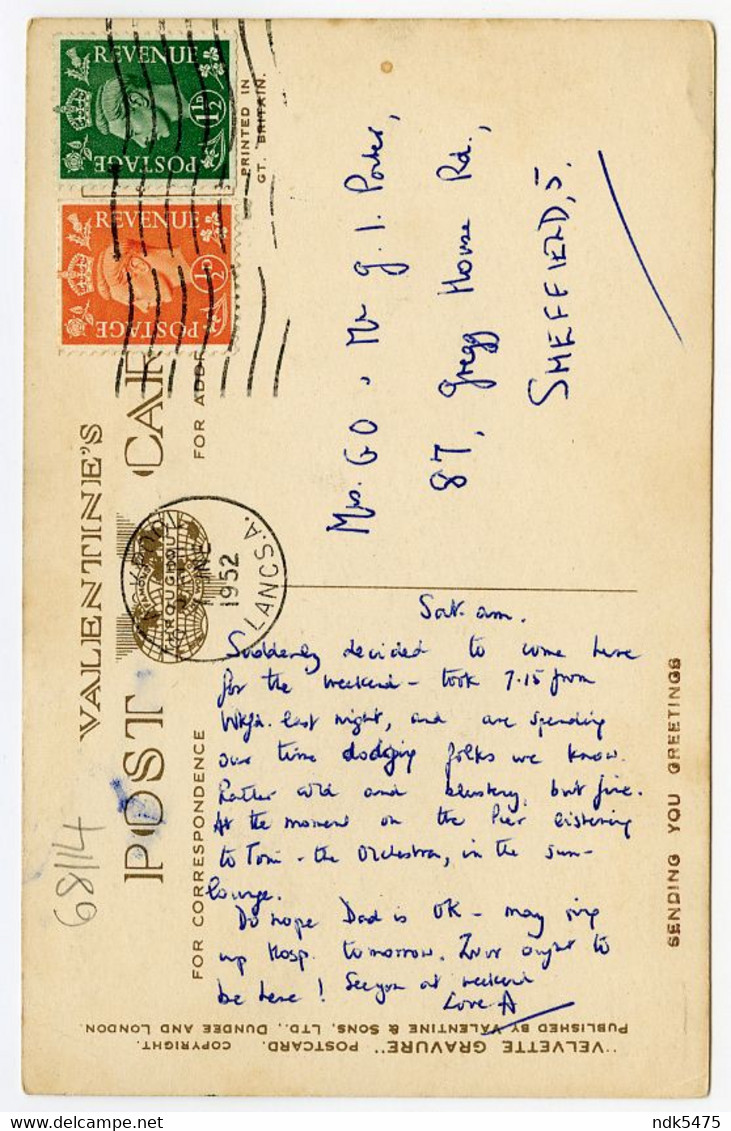 REVENUE
1½D
POSTAGE
REVENUE
½D
POSTAGE
PRINTED IN
GT. BRITAIN.
VALENTINE'S
POST CAR
FOR ADDR
FOR CORRESPONDENCE
JNE
1952
LANCS.A.
68/14
Mrs. GO & Mr G. I. Porter,
87, Gregg House Rd.,
SHEFFIELD, 5.
Sat. am.
Suddenly decided to come here
for the weekend – took 7.15 from
last night, and are spending
our time dodging folks we know.
Rather cold and blustery, but fine.
At the moment on the Pier listening
to Toni & the Orchestra, in the sun-
lounge.
Do hope Dad is OK – may ring
up Hosp. tomorrow. ought to
be here! See you at weekend
Love A
SENDING YOU GREETINGS
"VELVETTE GRAVURE" POSTCARD. COPYRIGHT.
PUBLISHED BY VALENTINE & SONS, LTD., DUNDEE AND LONDON.
ndk5475